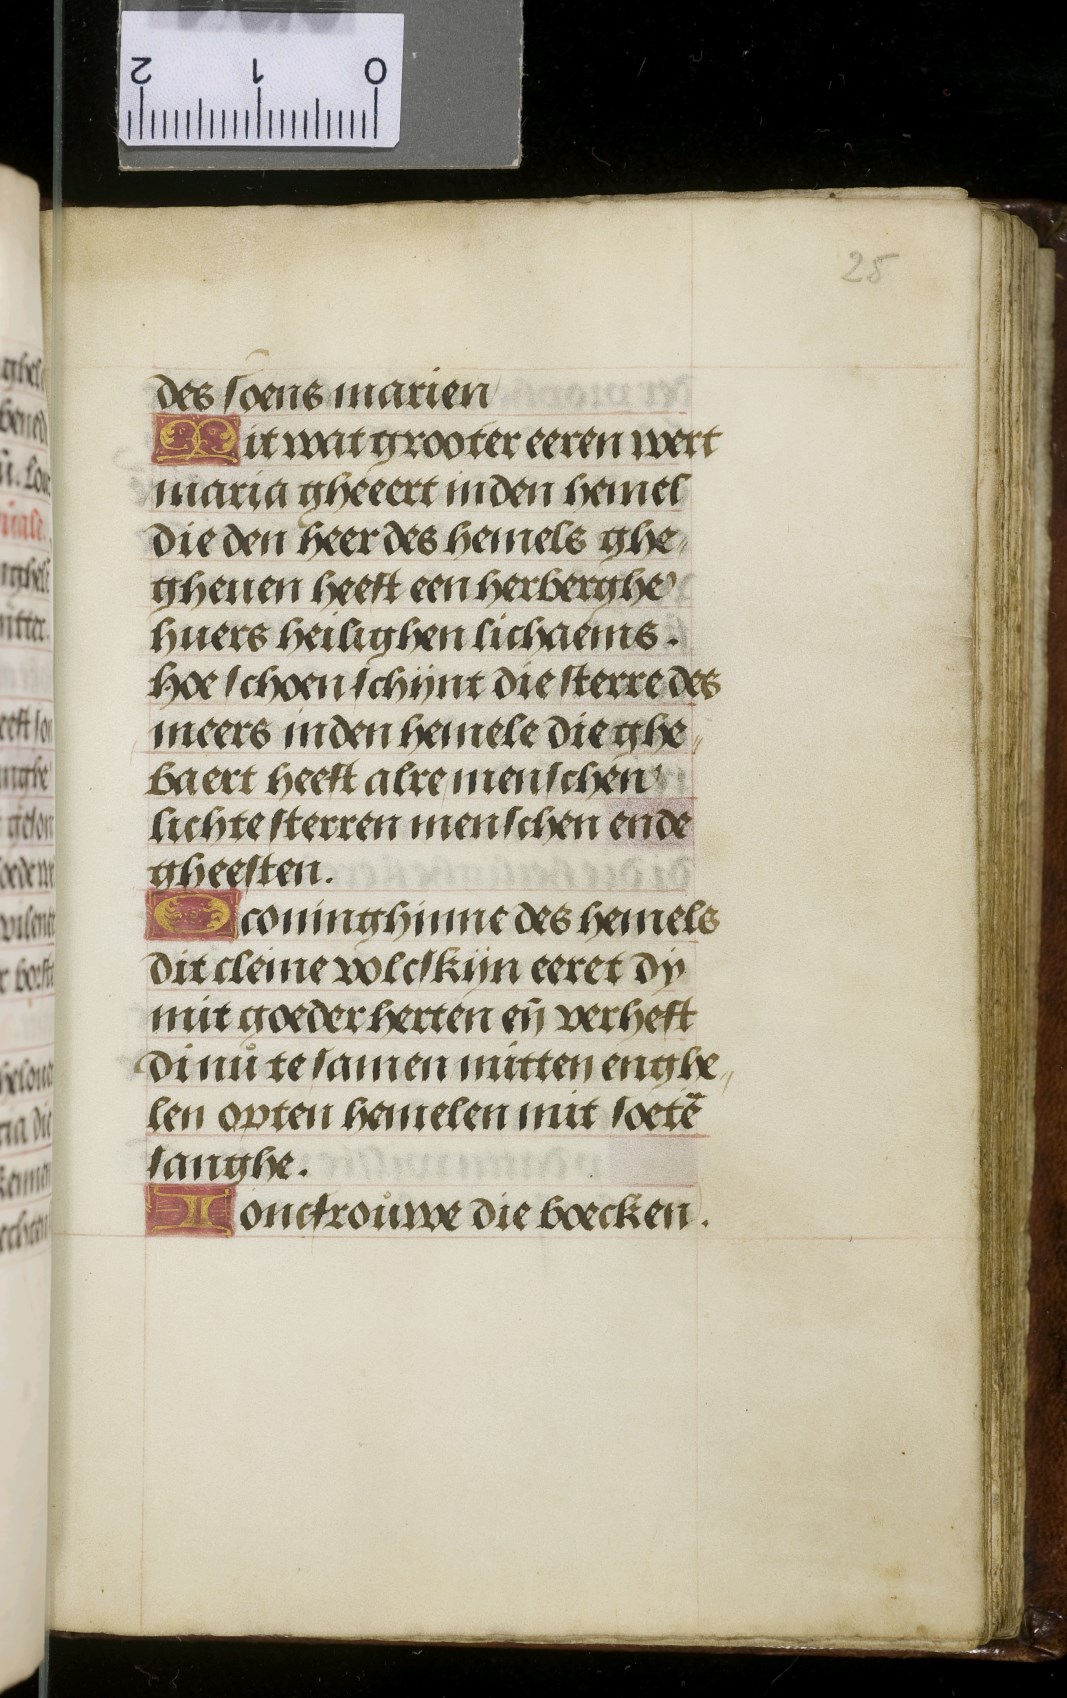 2 1 0
25
des soens marien
Mit wat grooter eeren wert
maria gheeert inden hemel
die den heer des hemels ghe
gheuen heeft een herberghe
huers heilighen lichaems.
hoe schoen schijnt die sterre des
meers inden hemele die ghe
baert heeft alre menschen
lichte sterren menschen ende
gheesten.
O coninghinne des hemels
dit cleine volcskijn eeret dy
mit goeder herten en̄ verheft
di nů te samen mitten enghe
len opten hemelen mit soetē
sanghe.
Ioncfroůwe die boecken.